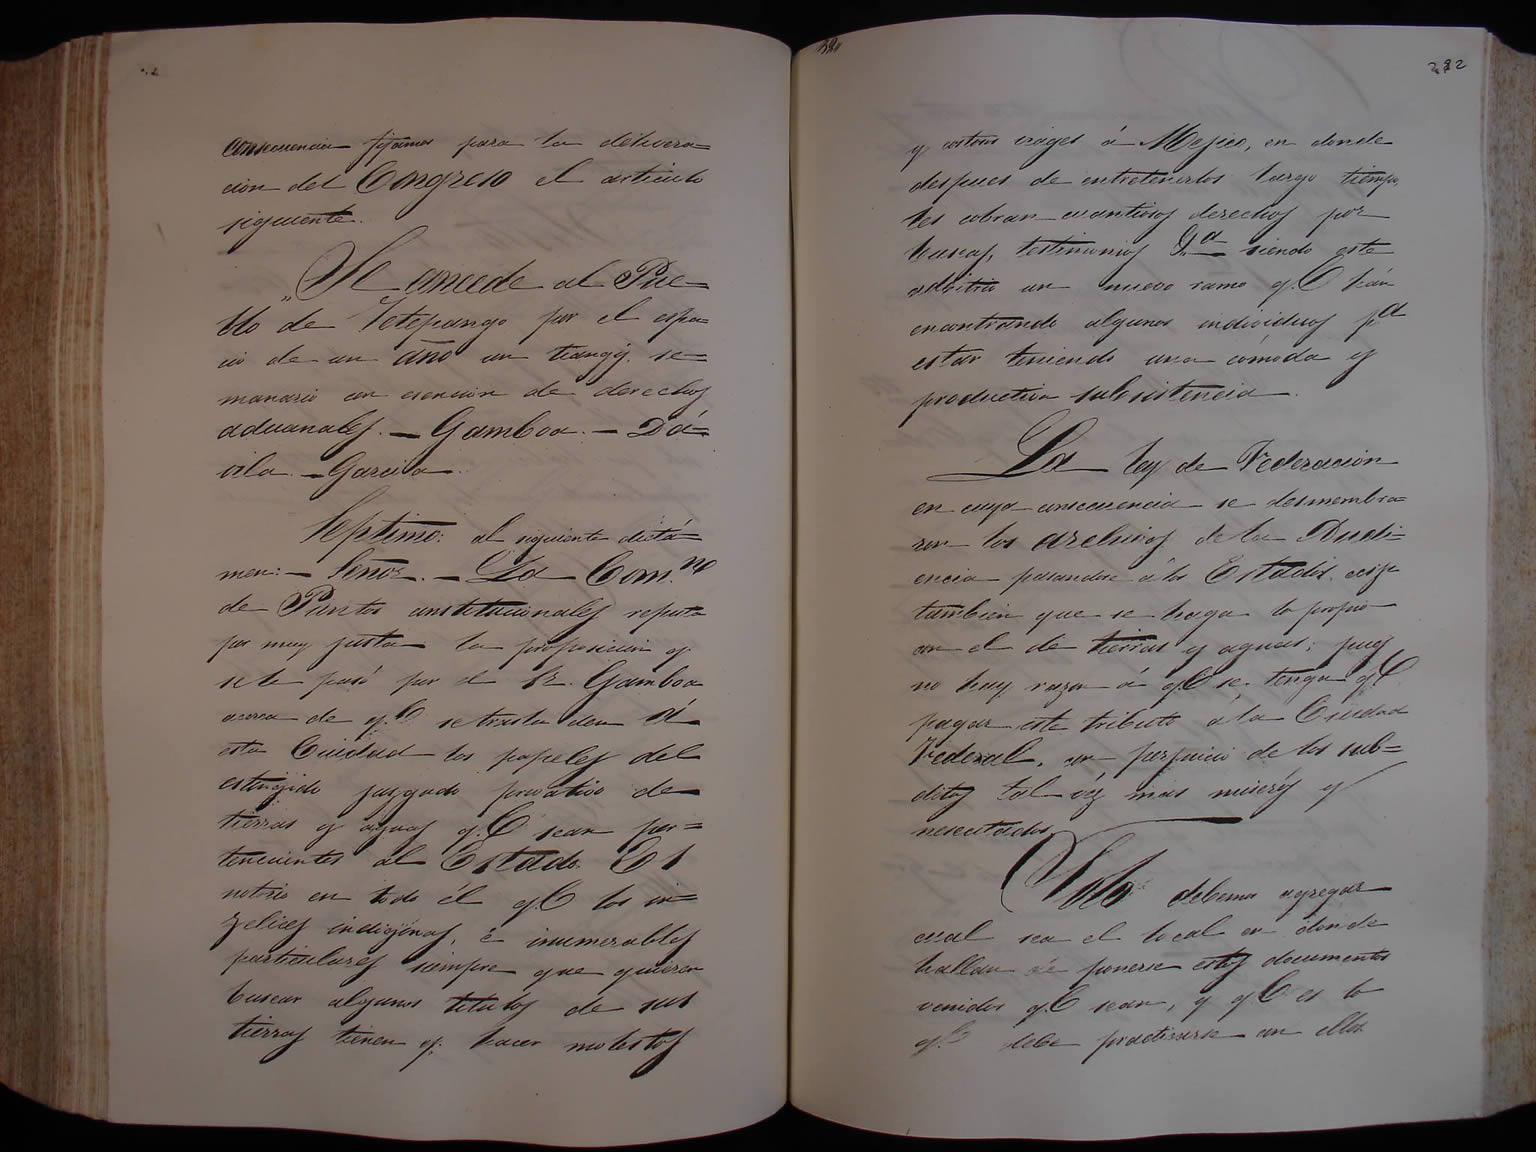 consecuencia fijamos para la delivera=
cion del Congreso el articulo
siguiente.
„Se concede al Pue=
blo de Tetepango por el espa=
cio de un año un tiangs. se=
manario con esencion de derechos
aduanales. — Gamboa. — Dá=
vila. — Garcia.
Septimo: al siguiente dictá=
men: — Señor. — La Com.on
de Puntos constitucionales reputa
por muy justa la proposicion q.
se le pasó por el Sr. Gamboa
acerca de q.e se trasladen á
esta Ciudad los papeles del
estinguido juzgado privativo de
tierras y aguas q.e sean per=
tenecientes al Estado. Es
notorio en todo él q.e los in=
felices indigenas, é inumerables
particulares siempre que quieren
buscar algunos titulos de sus
tierras tienen q. hacer molestos
322
y costosos viages á Mejico, en donde
despues de entretenerlos largo tiempo,
les cobran cuantiosos derechos por
buscas, testimonios &.a siendo este
arbitrio un nuevo ramo q.e han
encontrando algunos individuos p.a
estar teniendo una cómoda y
productiva subsistencia.
La ley de Federacion
en cuya consecuencia se desmembra=
ron los archivos de la Audi=
encia pasandose á los Estados, exije
tambien que se haga lo propio
con el de tierras y aguas; pues
no hay razon á q.e se tenga q.e
pagar este tributo á la Ciudad
Federal, con perjuicio de los sub=
ditos tal véz mas miserós y
nesecitados.
Solo debemos agregar
cual sea el local en donde
hallan de ponerse estos documentos
venidos q.e sean, y q.e es lo
q.e debe practicarse con ellos